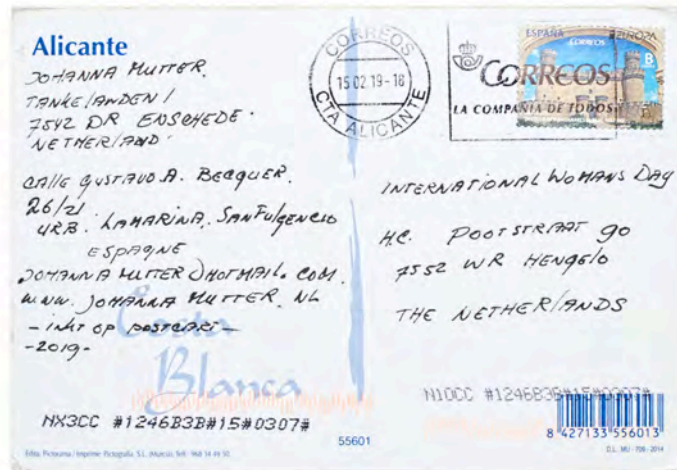 Alicante
JOHANNA MUTTER.
TANKELANDEN 1
7542 DR ENSCHEDE.
NETHERLAND
CALLE GUSTAVO A. BECQUER.
26/21
URB. LAMARINA, SANFULGENCIO
ESPAGNE
JOHANNA MUTTER @HOTMAIL.COM.
WWW. JOHANNA MUTTER. NL
- INKT OP POSTCART -
- 2019 -
Costa
Blanca
NX3CC #1246B3B#15#0307#
Edita: Pictorama / Imprime: Pictografía, S.L. (Murcia) Telf.: 968 14 49 50
55601
CORREOS
15 02 19-18
CTA ALICANTE
CORREOS
LA COMPAÑIA DE TODOS
ESPAÑA
CORREOS
EUROPA
B
INTERNATIONAL WOMANS DAY
H.C. POOTSTRAAT 90
7552 WR HENGELO
THE NETHERLANDS
N10CC #1246B3B#15#0307#
8 427133 556013
D.L. MU - 708 - 2014